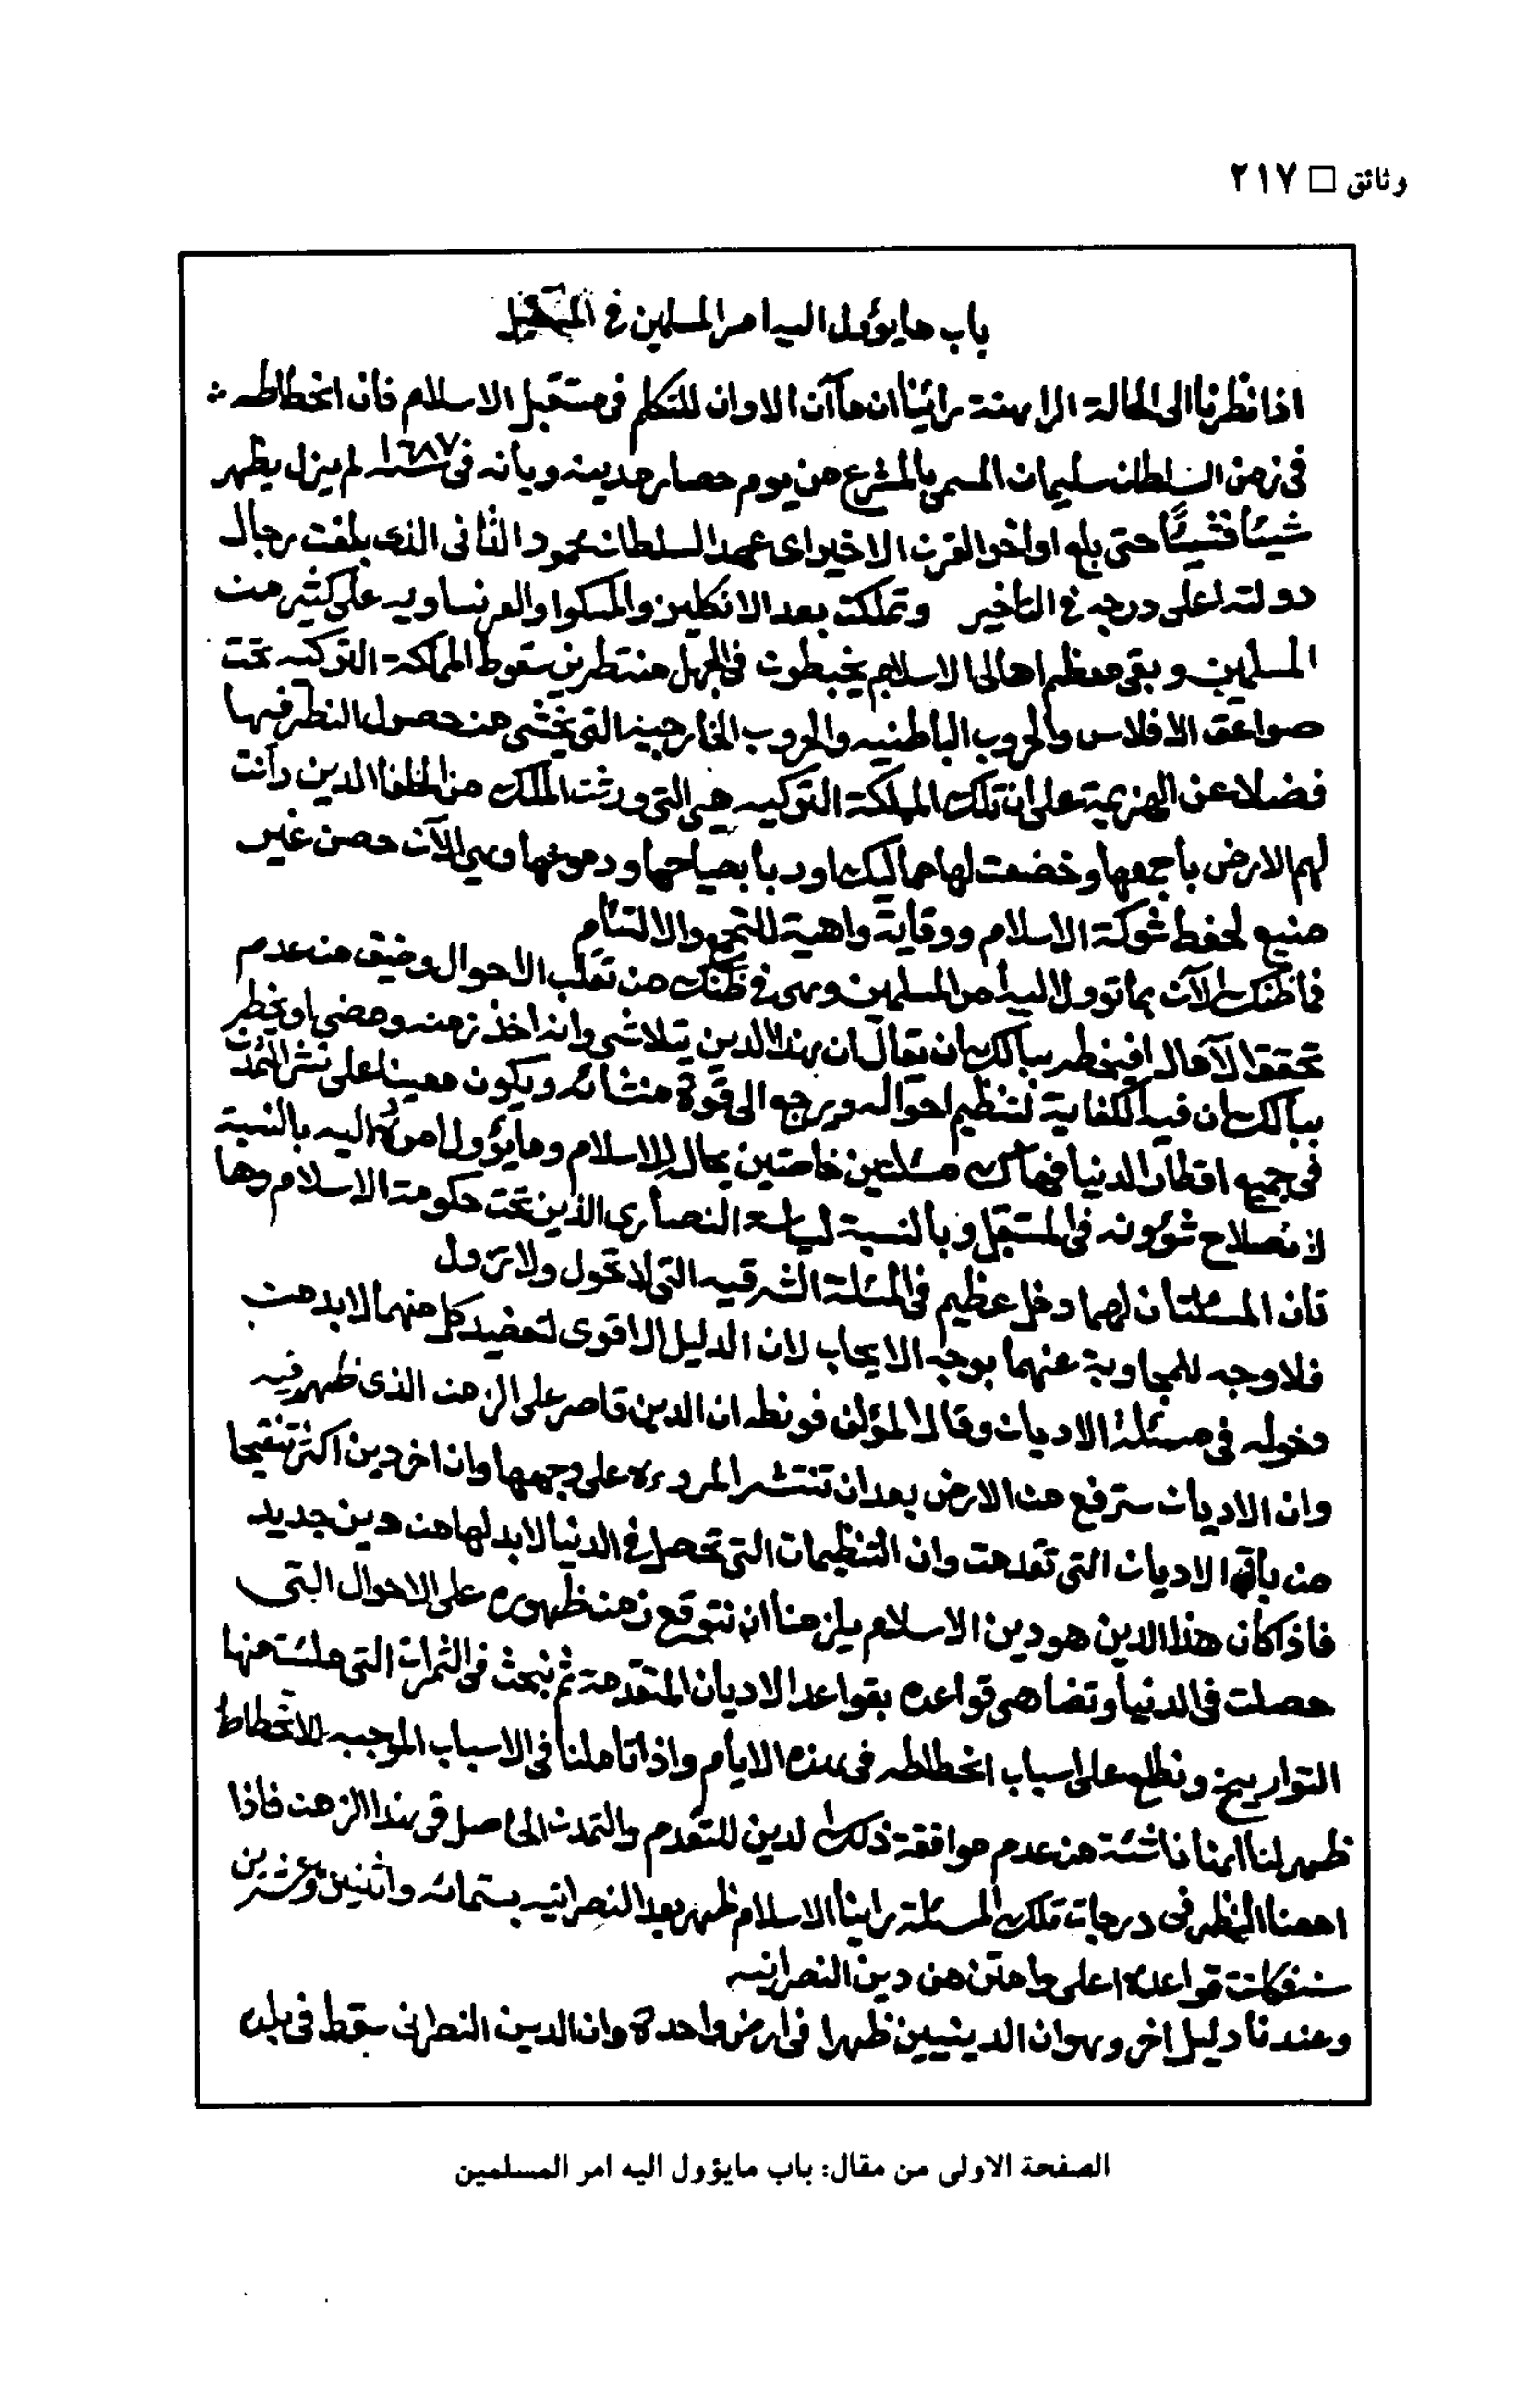 وثائق □ ٢١٧
باب مايؤول اليه امر المسلمين في المستقبل
اذا نظرنا الى الحالة الراهنة رائينا ان ما آن الاوان للتكلم فى مستقبل الاسلام فان انحطاطه
فى زمن السلطان سليمان المسمى بالمشرع من يوم حصار مدينة ويانه فى سنة ١٦٨٧ لم يزل يظهر
شيئا فشيئا حتى بلغ اواخر القرن الاخير اى عهد السلطان محمود الثانى الذى بلغت رجال
دولته اعلى درجه فى التاخير وتملكت بعد الانكليز والمسكوا والفرنساويه على كثير من
المسلمين وبقى معظم اهالى الاسلام يخبطون فى الجهل منتظرين سقوط المملكة التركيه تحت
صواعق الافلاس والحروب الباطنيه والحروب الخارجية التى يخشى من حصول النظر فيها
فضلا عن الهزيمة على ان تلك المملكة التركيه هى التى ورثت الملك من الخلفا الدين دانت
لهم الارض باجمعها وخضعت لها ممالك اوربا بصياحها ودموعها وهى الآن حصن غير
منيع لحفظ شوكة الاسلام ووقاية واهية للتجمع والالتئام
فاظنك الآن بما تؤول اليه امر المسلمين وهى فى ظنك من تقلب الاحوال وضيق من عدم
تحقق الآمال افيخطر ببالك ان يقال ان هذا الدين يتلاشى وانه اخذ زمنه ومضى او يخطر
ببالك ان فيه الكفاية لتنظيم احواله ويرجع الى قوة منشائه ويكون معينا على نشر التمدن
فى جميع اقطار الدنيا فهاك مسئلتين خاصتين بحال الاسلام ومايؤول امره اليه بالنسبة
لانصلاح شؤونه فى المستقبل وبالنسبة لسياسة النصارى الذين تحت حكومة الاسلام وها
تان المسئلتان لهما دخل عظيم فى المسئلة الشرقيه التى لا تحول ولا تزول
فلا وجه للمجاوبة عنهما بوجه الايجاب لان الدليل الاقوى لتعضيد كل منهما لابد من
دخوله فى مسئلة الاديان وقال المؤلف فونطه ان الدين قاصر على الزمن الذى ظهر فيه
وان الاديان سترفع من الارض بعد ان تنتشر المروءه على وجهها وان اخر دين اكثر تنقيحا
من باقى الاديان التى تقدمت وان التنظيمات التى تحصل فى الدنيا لابد لها من دين جديد
فاذا كان هذا الدين هو دين الاسلام يلزمنا ان نتوقع زمن ظهوره على الاحوال التى
حصلت فى الدنيا وتضاهى قواعده بقواعد الاديان المتقدمة ثم نبحث فى الثمرات التى ملئت منها
التواريخ ونطلع على اسباب انحطاطه فى هذه الايام واذا تاملنا فى الاسباب الموجبه للانحطاط
ظهر لنا انها ناشئة من عدم موافقة ذلك الدين للتقدم والتمدن الحاصل فى هذا الزمن فاذا
امعنا النظر فى درجات تلك المسئلة راينا الاسلام ظهر بعد النصرانيه بستمائه واثنين وعشرين
سنه فكانت قواعده اعلى وامتن من دين النصرانيه
وعندنا دليل اخر وهو ان الدينيين ظهرا فى ارض واحدة وان الدين النصرانى سقط فى بلده
الصفحة الاولى من مقال: باب مايؤول اليه امر المسلمين